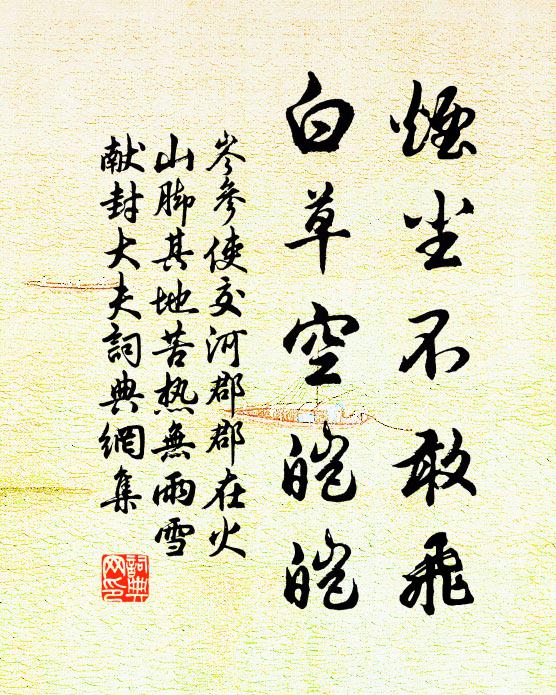 煙尘不敢飛
白草空皑皑
岑參使交河郡郡在火
山脚其地苦热無雨雪
献封大夫詞典網集
詞典
网印